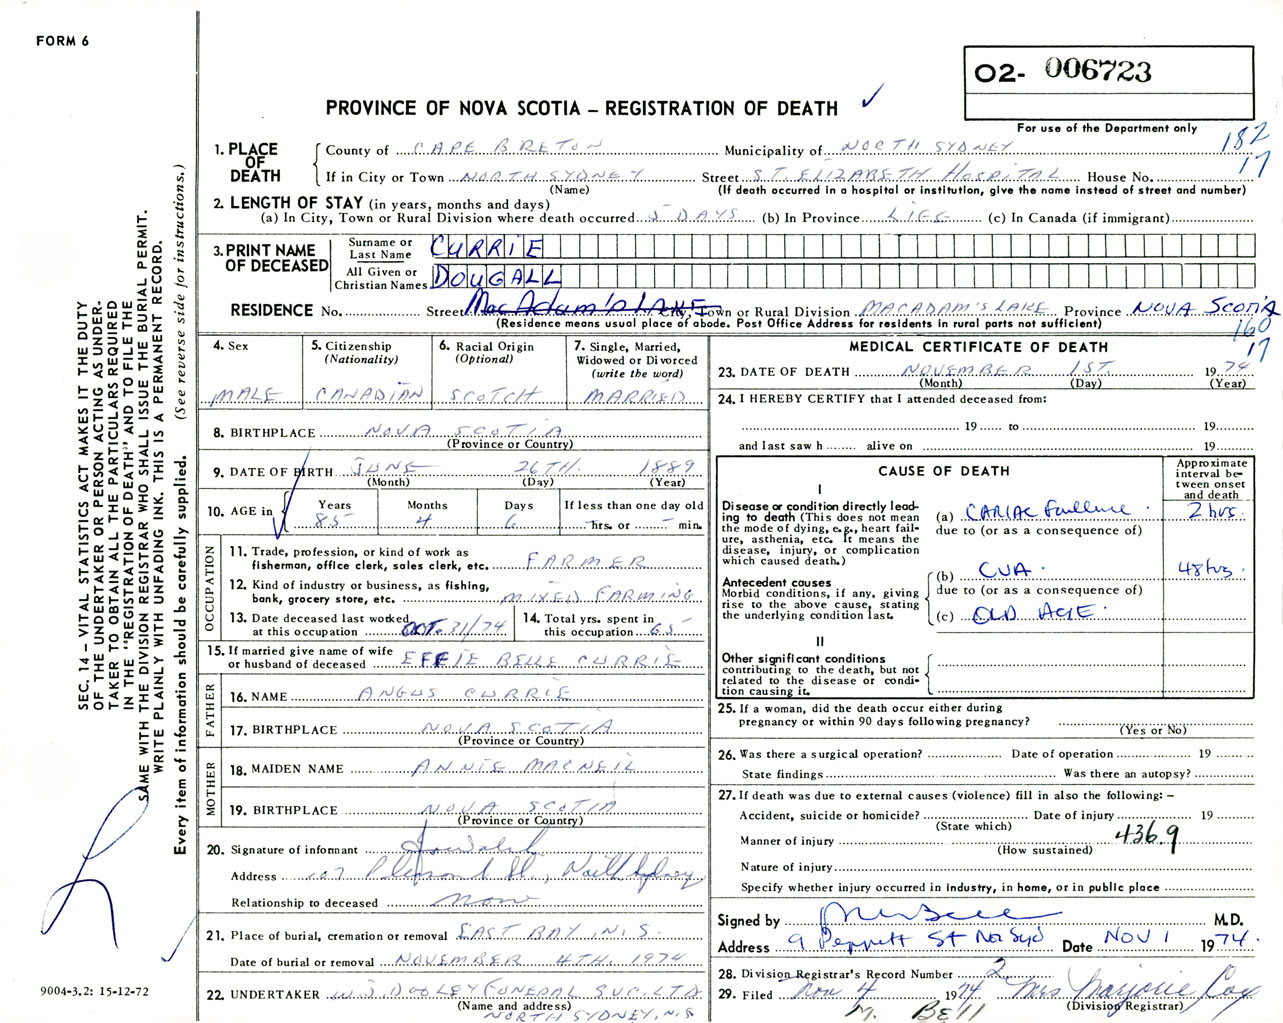 FORM 6
O2- 006723
PROVINCE OF NOVA SCOTIA – REGISTRATION OF DEATH ✓
For use of the Department only
182
17
1. PLACE OF DEATH
County of CAPE BRETON Municipality of NORTH SYDNEY
If in City or Town NORTH SYDNEY Street ST. ELIZABETH HOSPITAL House No.
(Name) (If death occurred in a hospital or institution, give the name instead of street and number)
2. LENGTH OF STAY (in years, months and days)
(a) In City, Town or Rural Division where death occurred 5 DAYS (b) In Province LIFE (c) In Canada (if immigrant)
3. PRINT NAME OF DECEASED
Surname or Last Name CURRIE
All Given or Christian Names DOUGALL
RESIDENCE No. Street MacAdam's LAKE City, Town or Rural Division MACADAM'S LAKE Province NOVA SCOTIA
(Residence means usual place of abode. Post Office Address for residents in rural parts not sufficient)
160
17
4. Sex
MALE
5. Citizenship
(Nationality)
CANADIAN
6. Racial Origin
(Optional)
SCOTCH
7. Single, Married,
Widowed or Divorced
(write the word)
MARRIED
8. BIRTHPLACE NOVA SCOTIA
(Province or Country)
9. DATE OF BIRTH JUNE 26TH. 1889
(Month) (Day) (Year)
10. AGE in
Years Months Days If less than one day old
85 4 6 hrs. or min.
OCCUPATION
11. Trade, profession, or kind of work as
fisherman, office clerk, sales clerk, etc. FARMER
12. Kind of industry or business, as fishing,
bank, grocery store, etc. MIXED FARMING
13. Date deceased last worked
at this occupation OCT. 31/74
14. Total yrs. spent in
this occupation 65
15. If married give name of wife
or husband of deceased EFFIE BELLE CURRIE
FATHER
16. NAME ANGUS CURRIE
17. BIRTHPLACE NOVA SCOTIA
(Province or Country)
MOTHER
18. MAIDEN NAME ANNIE MACNEIL
19. BIRTHPLACE NOVA SCOTIA
(Province or Country)
20. Signature of informant
Address 107 Pleasant St., North Sydney
Relationship to deceased None
21. Place of burial, cremation or removal EAST BAY, N.S.
Date of burial or removal NOVEMBER 4TH. 1974
22. UNDERTAKER W.J. DOOLEY FUNERAL SVC. LTD
(Name and address)
NORTH SYDNEY, N.S.
MEDICAL CERTIFICATE OF DEATH
23. DATE OF DEATH NOVEMBER 1ST. 1974
(Month) (Day) (Year)
24. I HEREBY CERTIFY that I attended deceased from:
19 to 19
and last saw h alive on 19
CAUSE OF DEATH
Approximate
interval be-
tween onset
and death
I
Disease or condition directly lead-
ing to death (This does not mean
the mode of dying, e.g., heart fail-
ure, asthenia, etc. It means the
disease, injury, or complication
which caused death.)
(a) CARIAC Faillure. 2 hrs.
due to (or as a consequence of)
Antecedent causes
Morbid conditions, if any, giving
rise to the above cause, stating
the underlying condition last.
(b) CVA. 48 hrs.
due to (or as a consequence of)
(c) OLD AGE.
II
Other significant conditions
contributing to the death, but not
related to the disease or condi-
tion causing it.
25. If a woman, did the death occur either during
pregnancy or within 90 days following pregnancy?
(Yes or No)
26. Was there a surgical operation? Date of operation 19
State findings Was there an autopsy?
27. If death was due to external causes (violence) fill in also the following: –
Accident, suicide or homicide? Date of injury 19
(State which)
Manner of injury 436.9
(How sustained)
Nature of injury
Specify whether injury occurred in Industry, in home, or in public place
Signed by M. Bell M.D.
Address 9 Peppett St Nor Syd Date NOV 1 1974.
28. Division Registrar's Record Number 2
29. Filed Nov 4 1974 Mrs Marjorie Cox
(Division Registrar)
M. BELL
SEC. 14 – VITAL STATISTICS ACT MAKES IT THE DUTY
OF THE UNDERTAKER OR PERSON ACTING AS UNDER-
TAKER TO OBTAIN ALL THE PARTICULARS REQUIRED
IN THE "REGISTRATION OF DEATH" AND TO FILE THE
SAME WITH THE DIVISION REGISTRAR WHO SHALL ISSUE THE BURIAL PERMIT.
WRITE PLAINLY WITH UNFADING INK. THIS IS A PERMANENT RECORD.
Every item of information should be carefully supplied. (See reverse side for instructions.)
9004-3.2: 15-12-72